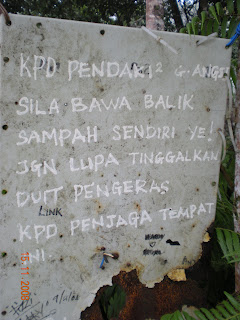 KPD PENDAKI² G. ANGSI
SILA BAWA BALIK
SAMPAH SENDIRI YE!
JGN LUPA TINGGALKAN
DUIT PENGERAS
LINK
KPD PENJAGA TEMPAT
INI.